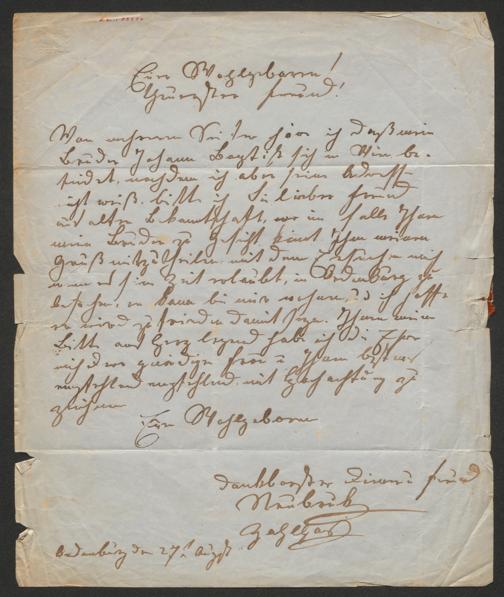 Euer Wohlgeboren!
Theuerster Freund!
Von mehreren Seiten höre ich daß mein
Bruder Johann Baptist sich in Wien be-
findet, nachdem ich aber seine Adresse
nicht weiß, bitte ich Sie lieber Freund
aus alter Bekanntschaft, wo im Falle Ihnen
mein Bruder zu Gesicht kömt Ihm meinen
Gruß mitzutheilen, mit dem Ersuchen mich
wenn es seine Zeit erlaubt, in Oedenburg zu
besuchen, er kann bei mir wohnen, und ich hoffe
er wird zufrieden damit seyn. Ihnen meine
Bitte ans Herz legend habe ich die Ehre
mich der gnädigen Frau u Ihnen bestens
empfehlend mit Hochachtung zu
zeichnen
Euer Wohlgeboren
dankbarster Diener u Freund
Oedenburg den 27t Augst